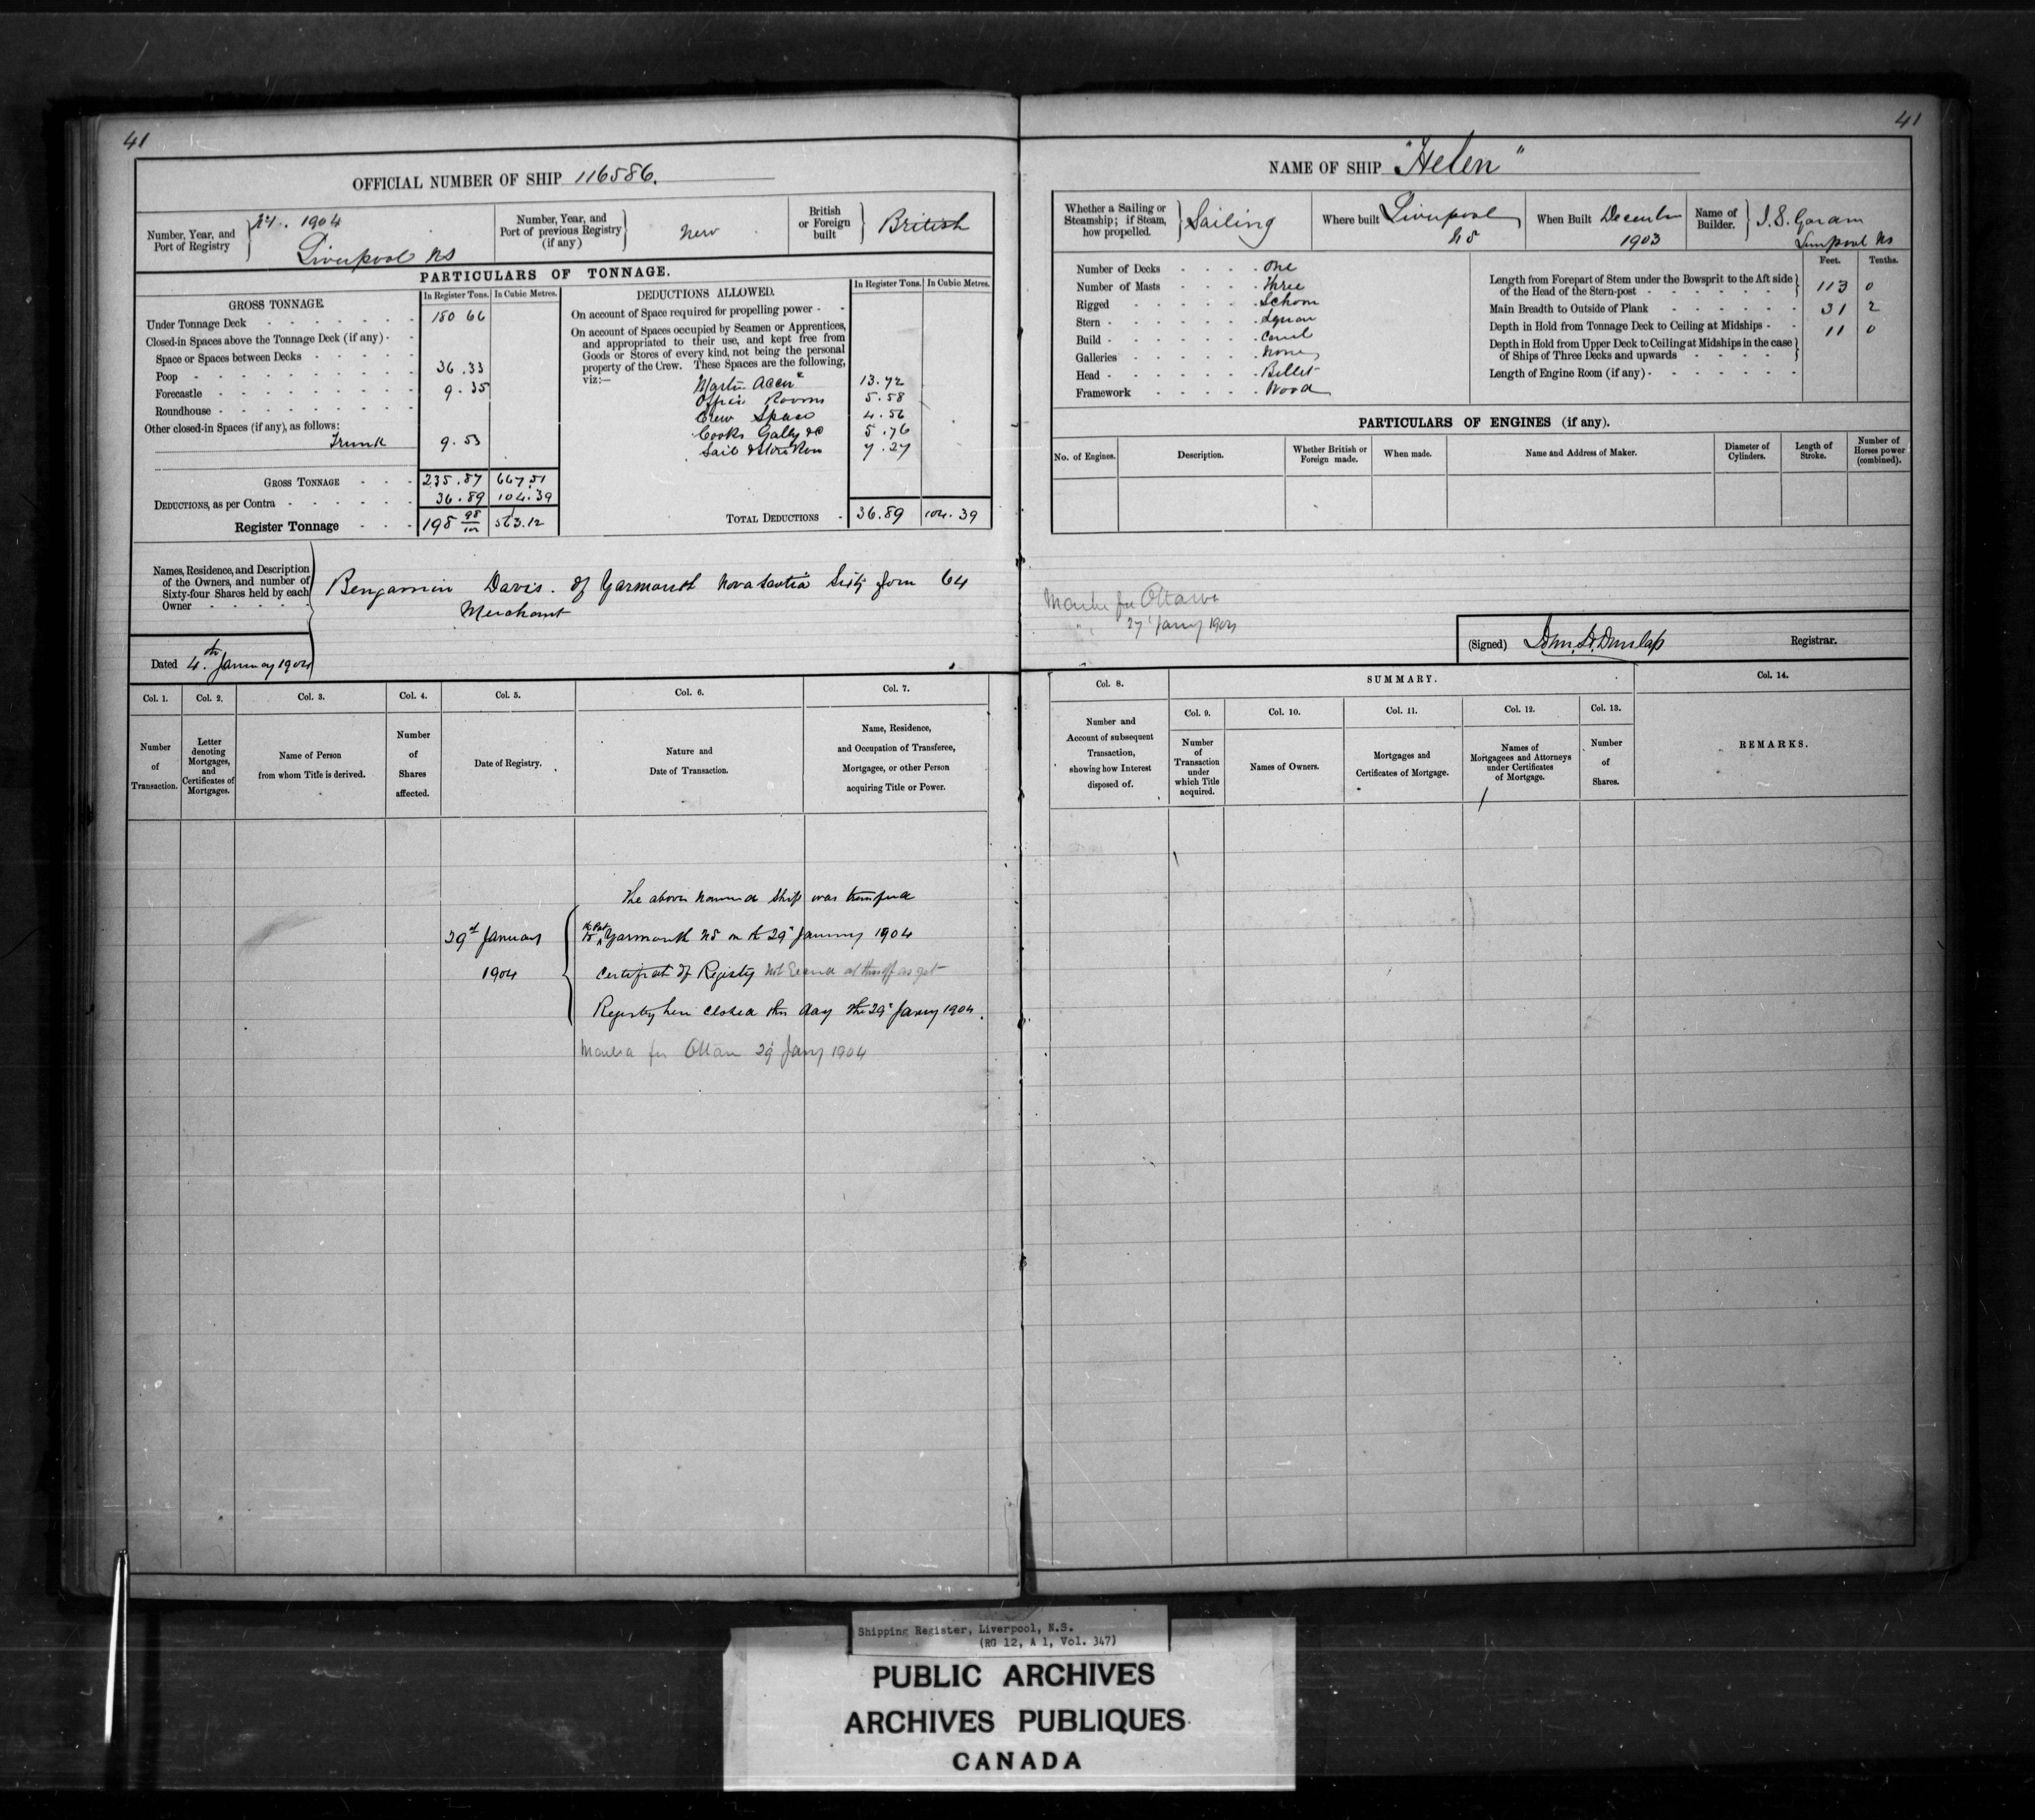 41
OFFICIAL NUMBER OF SHIP 116586.
Number, Year, and
Port of Registry
1904
Liverpool NS
Number, Year, and
Port of previous Registry
(if any)
New
British
or Foreign
built
British
PARTICULARS OF TONNAGE.
GROSS TONNAGE.
In Register Tons.
In Cubic Metres.
Under Tonnage Deck
180 66
Closed-in Spaces above the Tonnage Deck (if any)
Space or Spaces between Decks
Poop
36.33
Forecastle
9.35
Roundhouse
Other closed-in Spaces (if any), as follows:
Trunk
9.53
GROSS TONNAGE
235.87 667.51
DEDUCTIONS, as per Contra
36.89 104.39
Register Tonnage
198 98/100 563.12
DEDUCTIONS ALLOWED.
In Register Tons.
In Cubic Metres.
On account of Space required for propelling power
On account of Spaces occupied by Seamen or Apprentices,
and appropriated to their use, and kept free from
Goods or Stores of every kind, not being the personal
property of the Crew. These Spaces are the following,
viz:—
13.72
Office Rooms 5.58
Crew Space 4.56
Cooks Gally &c 5.76
Sail & Store Room 7.27
TOTAL DEDUCTIONS
36.89 104.39
Names, Residence, and Description
of the Owners, and number of
Sixty-four Shares held by each
Owner
Benjamin Davis. of Yarmouth Nova Scotia Sixty four 64
Merchant
Dated 4th January 1904
Col. 1.
Number
of
Transaction.
Col. 2.
Letter
denoting
Mortgages,
and
Certificates of
Mortgages.
Col. 3.
Name of Person
from whom Title is derived.
Col. 4.
Number
of
Shares
affected.
Col. 5.
Date of Registry.
Col. 6.
Nature and
Date of Transaction.
Col. 7.
Name, Residence,
and Occupation of Transferee,
Mortgagee, or other Person
acquiring Title or Power.
29th January
1904
The above named ship was
to Port Yarmouth NS on the 29th January 1904
Certificate of Registry not
Registry here closed this day the 29th Jany 1904.
29 Jany 1904
41
NAME OF SHIP "Helen"
Whether a Sailing or
Steamship; if Steam,
how propelled.
Sailing
Where built
Liverpool
NS
When Built
December
1903
Name of
Builder.
Liverpool NS
Number of Decks One
Number of Masts Three
Rigged Schoon
Stern
Build Carvel
Galleries None
Head Billet
Framework Wood
Feet. Tenths.
Length from Forepart of Stem under the Bowsprit to the Aft side
of the Head of the Stern-post
113 0
Main Breadth to Outside of Plank
31 2
Depth in Hold from Tonnage Deck to Ceiling at Midships
11 0
Depth in Hold from Upper Deck to Ceiling at Midships in the case
of Ships of Three Decks and upwards
Length of Engine Room (if any)
PARTICULARS OF ENGINES (if any).
No. of Engines.
Description.
Whether British or
Foreign made.
When made.
Name and Address of Maker.
Diameter of
Cylinders.
Length of
Stroke.
Number of
Horses power
(combined).
for Ottawa
27 Jany 1904
(Signed) Dunlap Registrar.
Col. 8.
Number and
Account of subsequent
Transaction,
showing how Interest
disposed of.
SUMMARY.
Col. 9.
Number
of
Transaction
under
which Title
acquired.
Col. 10.
Names of Owners.
Col. 11.
Mortgages and
Certificates of Mortgage.
Col. 12.
Names of
Mortgagees and Attorneys
under Certificates
of Mortgage.
Col. 13.
Number
of
Shares.
Col. 14.
REMARKS.
Shipping Register, Liverpool, N.S.
(RG 12, A 1, Vol. 347)
PUBLIC ARCHIVES
ARCHIVES PUBLIQUES
CANADA